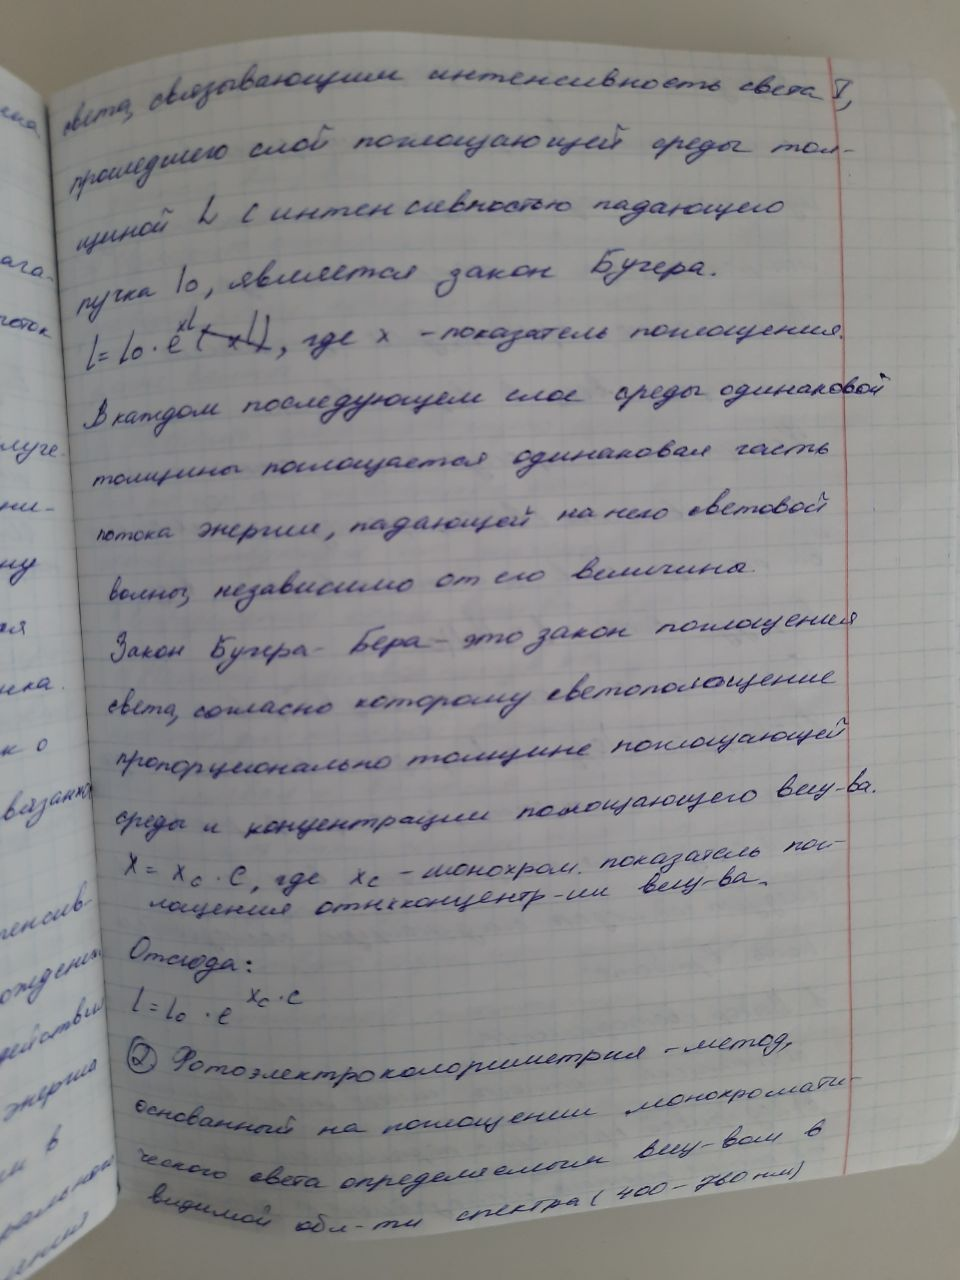 света, связывающим интенсивность света I,
прошедшего слой поглощающей среды тол-
щиной L с интенсивностью падающего
пучка I₀, является закон Бугера.
I = I₀ · e^xL, где x – показатель поглощения.
В каждом последующем слое среды одинаковой
толщины поглощается одинаковая часть
потока энергии, падающей на него световой
волны, независимо от его величины.
Закон Бугера – Бера – это закон поглощения
света, согласно которому светопоглощение
пропорционально толщине поглощающей
среды и концентрации поглощающего вещ-ва.
X = Xc · C, где Xc – монохром. показатель пог-
лощения концентр-ии вещ-ва.
Отсюда:
I = I₀ · e^Xc·c
② Фотоэлектроколориметрия – метод,
основанный на поглощении монохромати-
ческого света определяемым вещ-вом в
видимой обл-ти спектра (400 – 760 нм)
ага-
поток
луче-
ни-
ну
ика.
к о
связанно
тенсив-
ождении
действия
энергия
м в